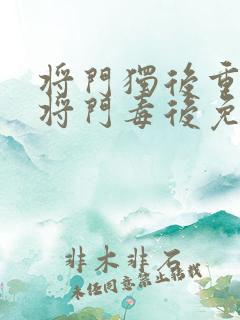 将門獨後重
将門毒後免
非木非石
未经同意禁止转载